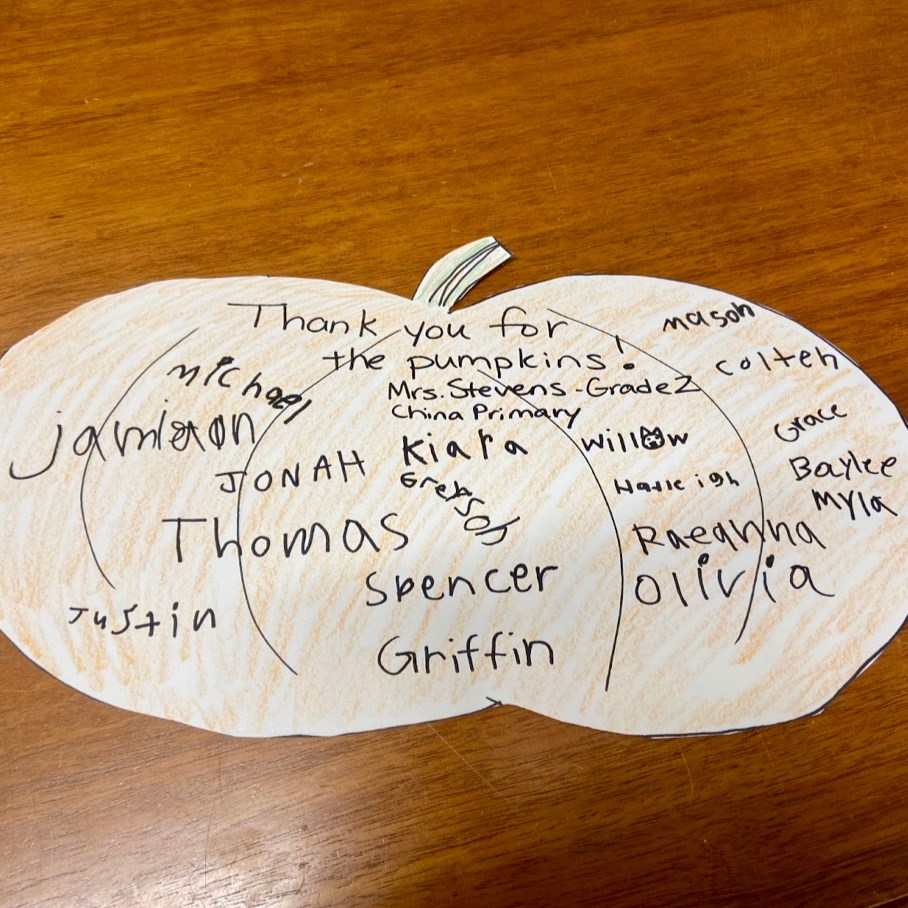 Thank you for
the pumpkins!
Mrs. Stevens - Grade 2
China Primary
mason
colten
michael
Grace
Kiara
Willow
JONAH
Baylee
Myla
Thomas
Raeanna
Spencer
Olivia
Justin
Griffin